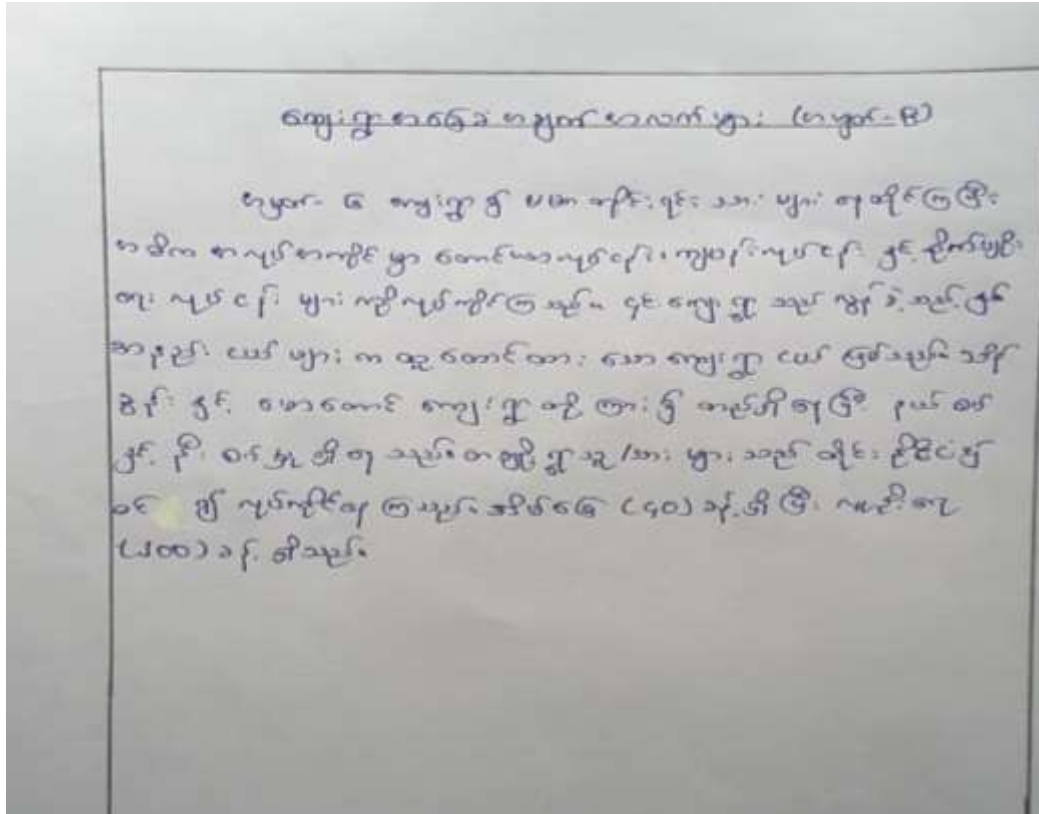 ကျေးရွာအခြေခံအချက်အလက်များ (အမှတ်-၆)
အမှတ်- ၆ ကျေးရွာ၌ ဗမာ တိုင်းရင်း သား များ နေထိုင်ကြပြီး
အဓိက အလုပ်အကိုင် မှာ တောင်ယာလုပ်ငန်း၊ ကျပန်းလုပ်ငန်း နှင့် စိုက်ပျိုး
ရေး လုပ်ငန်း များ ကို လုပ်ကိုင်ကြ သည်။ ၎င်း ကျေးရွာ သည် လွန်ခဲ့သည့် နှစ်
အနည်း ငယ် များ က ထူထောင်ထား သော ကျေးရွာ ငယ် ဖြစ်သည်။ သိန်
ဇွန်း နှင့် မောတောင် ကျေးရွာ တို့ ကြား ၌ တည်ရှိ နေပြီး နယ်စပ်
နှင့် နီး စပ် မှု ရှိ နေ သည်။ တချို့ ရွာသူ/သား များ သည် ထိုင်း နိုင်ငံ၌
ဝင် ၍ လုပ်ကိုင်နေ ကြသည်။ အိမ်ခြေ (၄၀) ခန့် ရှိ ပြီး လူဦးရေ
(၂၀၀) ခန့် ရှိသည်။